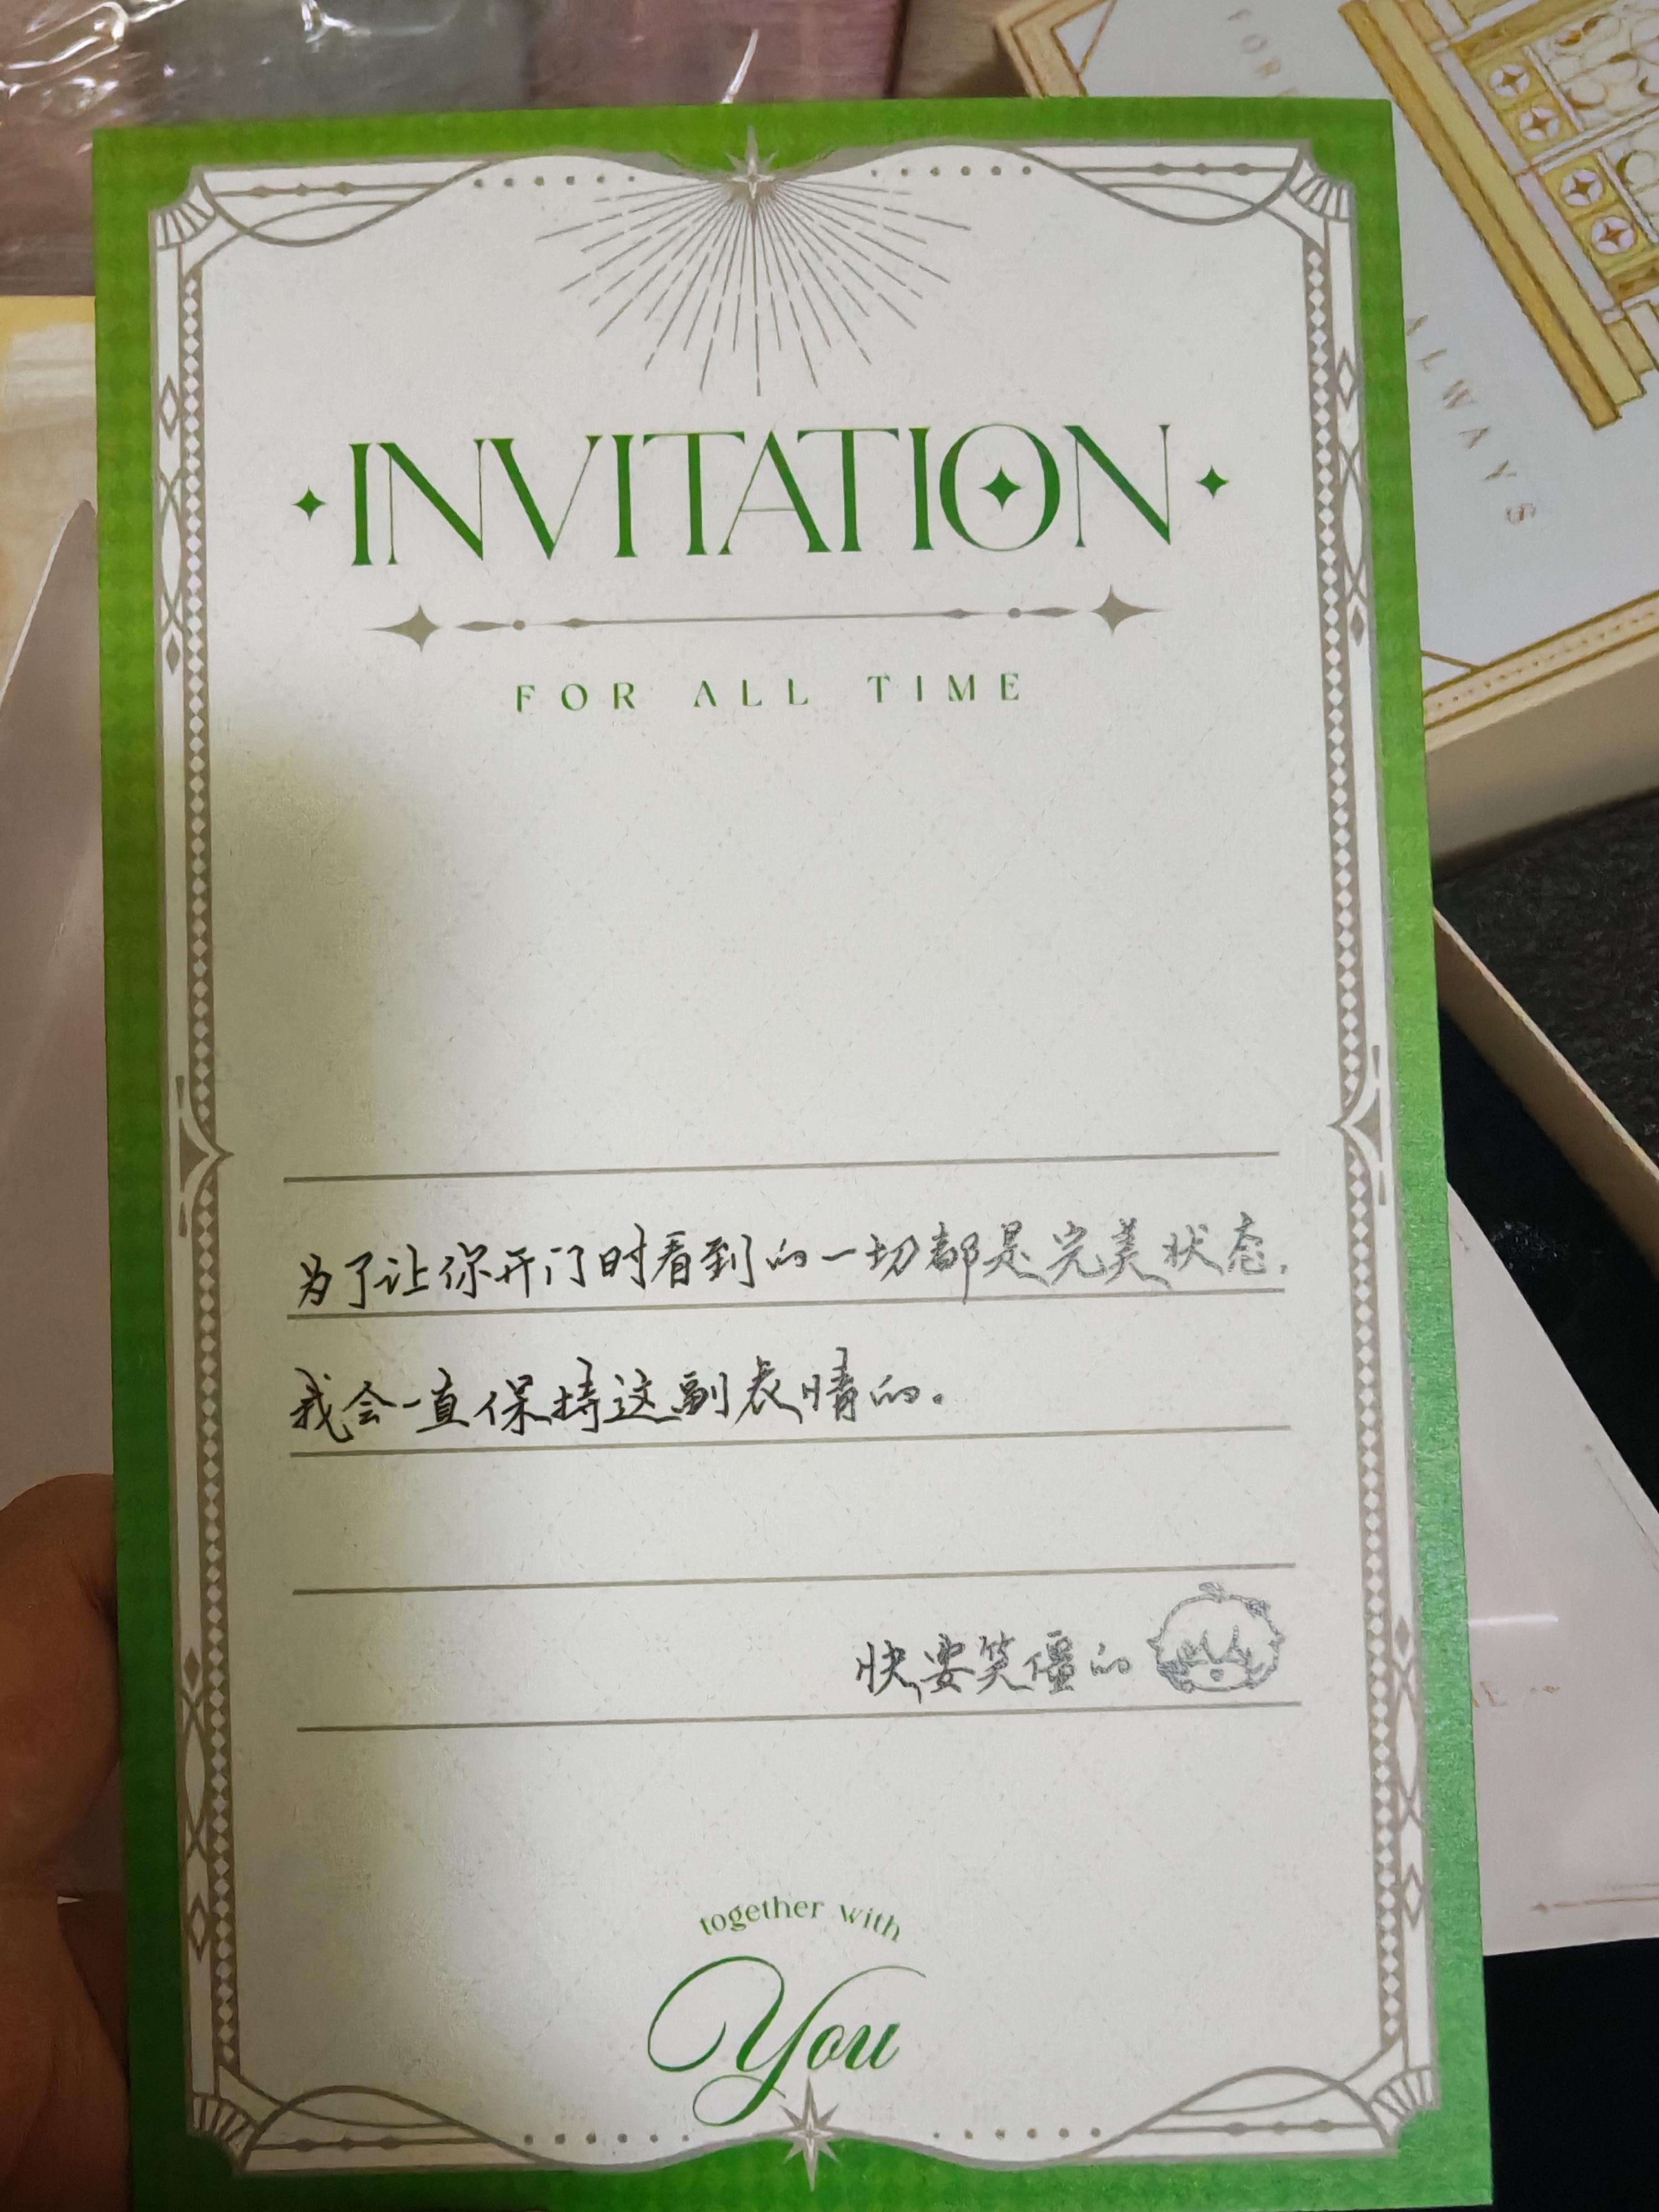 FOR
ALWAYS
INVITATION
FOR ALL TIME
为了让你开门时看到的一切都是完美状态，
我会一直保持这副表情的。
快要笑僵的
together with
You